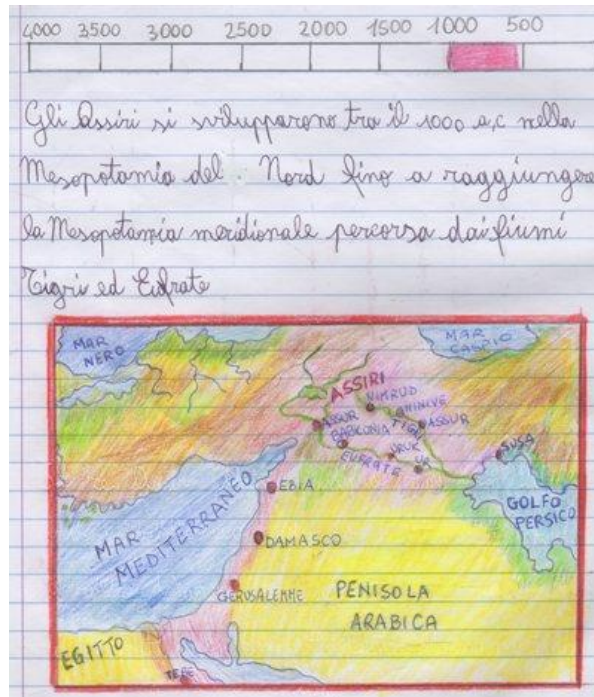 4000 3500 3000 2500 2000 1500 1000 500
Gli Assiri si svilupparono tra il 1000 a,c nella
Mesopotamia del Nord fino a raggiungere
la Mesopotamia meridionale percorsa dai fiumi
Tigri ed Eufrate
MAR NERO
MAR CASPIO
ASSIRI
NIMRUD
NINIVE
ASSUR
TIGRI
ASSUR
BABILONIA
URUK
SUSA
EUFRATE
UR
EBIA
GOLFO PERSICO
MAR MEDITERRANEO
DAMASCO
GERUSALEMME
PENISOLA
ARABICA
EGITTO
TEBE